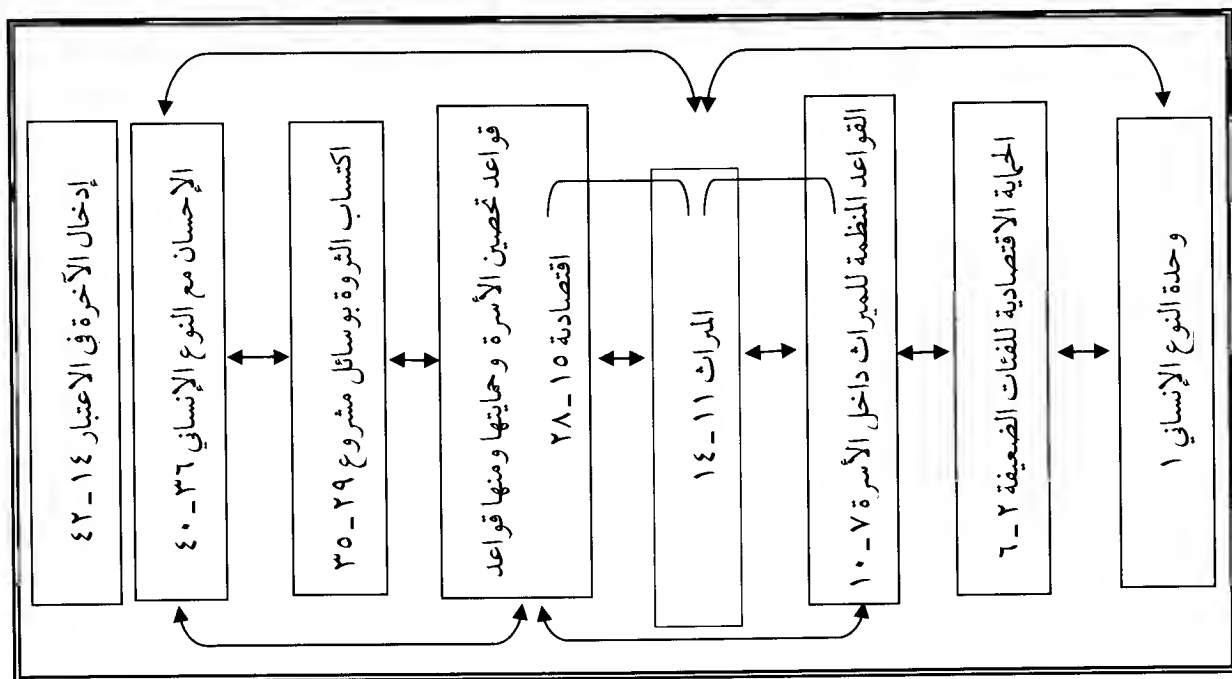 وحدة النوع الإنساني ١
الحماية الاقتصادية للفئات الضعيفة ٢_٦
القواعد المنظمة للميراث داخل الأسرة ٧_١٠
المراث ١١_١٤
قواعد تحصين الأسرة وحمايتها ومنها قواعد
اقتصادية ١٥_٢٨
اكتساب الثروة بوسائل مشروع ٢٩_٣٥
الإحسان مع النوع الإنساني ٣٦_٤٠
إدخال الآخرة في الاعتبار ١٤_٤٢